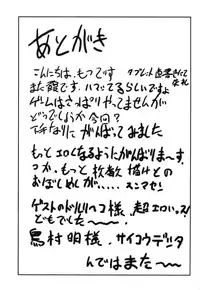 あとがき
こんにちは、もつです
また霞です。ハマってるらしいですよ
ゲームはさっぱりやってませんが
どうでしょうか今回?
下手なりにがんばってみました
もっとエロくなるようにがんばりまーす。
つか、もっと枚数描けとの
おぼしめしが‥‥スンマセン
ゲストのドルリヘコ様、超エロいっス!
どもでしたー〜〜。
鳥村明様、サイコウデシタ
んではまた〜〜